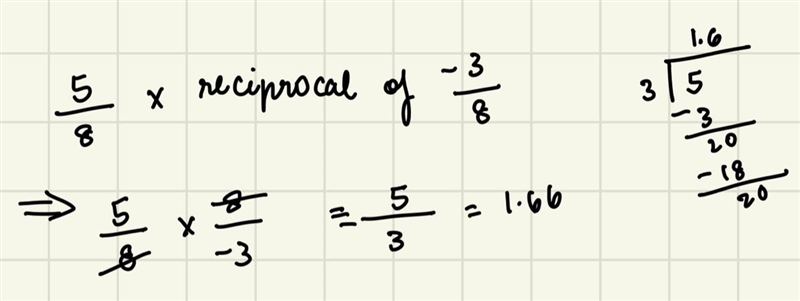 5/8 × reciprocal of -3/8
⇒ 5/8 × 8/-3 = 5/3 = 1.66
1.6
3 5
-3
20
-18
20